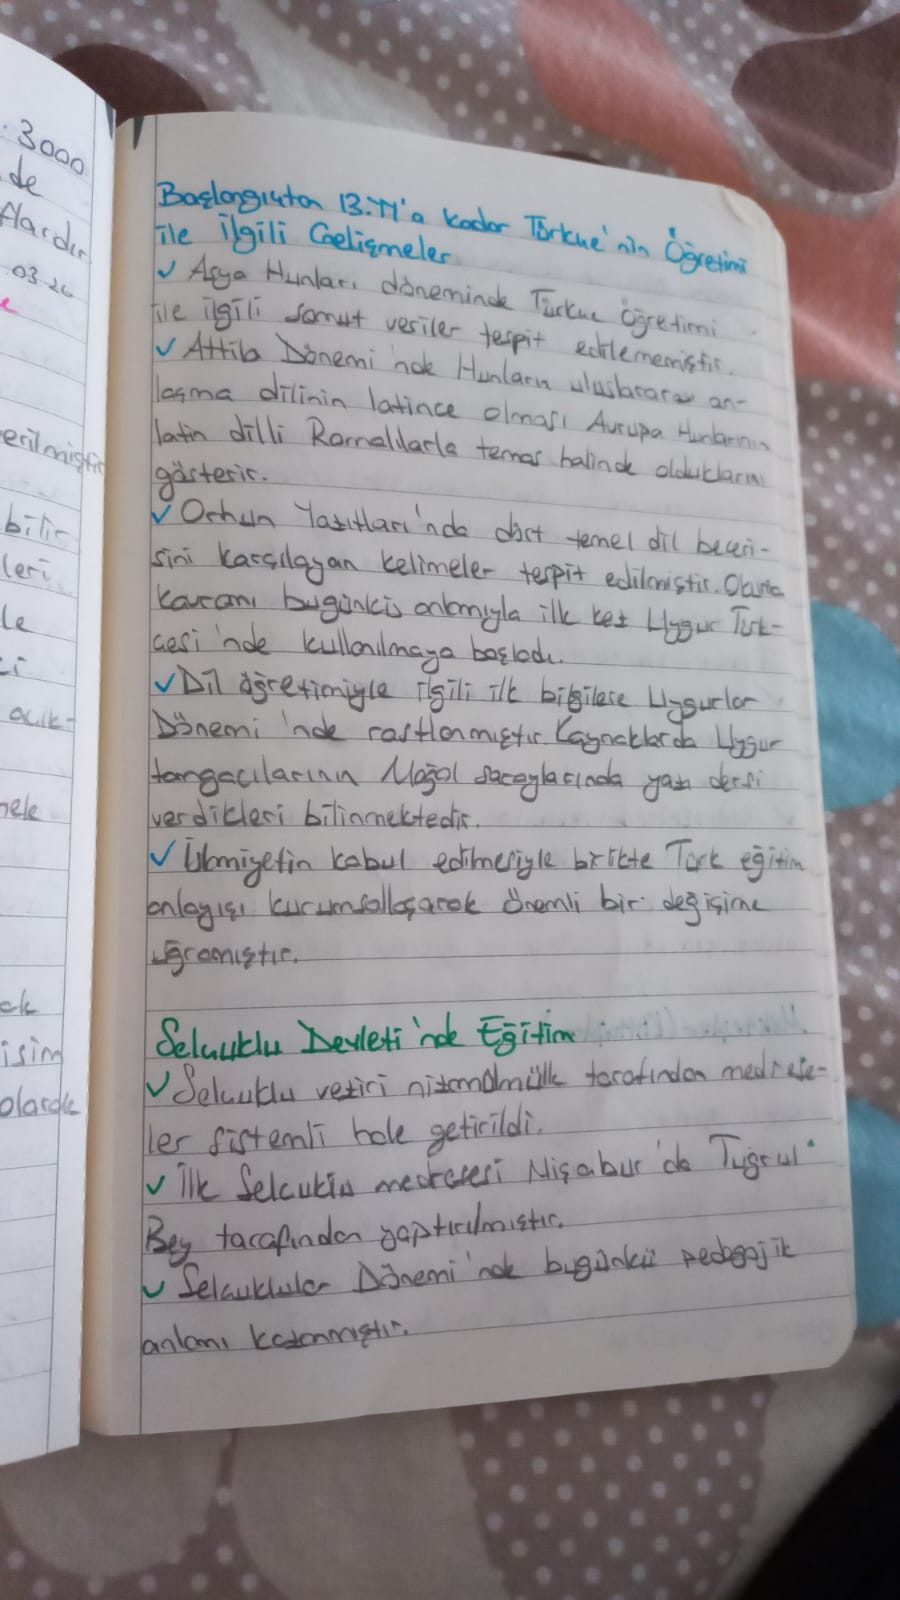 . 3000
de
flardır
.03.26
e
erilmiştir
bilir
leri
le
ci
açık-
mele
ek
isim
olarak
Başlangıçtan 13.YY'a kadar Türkçe'nin Öğretimi
ile ilgili Gelişmeler
✓ Asya Hunları döneminde Türkçe Öğretimi
ile ilgili somut veriler tespit edilememiştir.
✓ Attila Dönemi'nde Hunların uluslararası an-
laşma dilinin latince olması Avrupa Hunlarının
latin dilli Romalılarla temas halinde olduklarını
gösterir.
✓ Orhun Yazıtları'nda dört temel dil beceri-
sini karşılayan kelimeler tespit edilmiştir. Okuma
kavramı bugünkü anlamıyla ilk kez Uygur Türk-
çesi'nde kullanılmaya başladı.
✓ Dil öğretimiyle ilgili ilk bilgilere Uygurlar
Dönemi'nde rastlanmıştır. Kaynaklarda Uygur
tamgacılarının Moğol saraylarında yazı dersi
verdikleri bilinmektedir.
✓ İslamiyetin kabul edilmesiyle birlikte Türk eğitim
anlayışı kurumsallaşarak önemli bir değişime
uğramıştır.
Selçuklu Devleti'nde Eğitim
✓ Selçuklu veziri nizamülmülk tarafından medrese-
ler sistemli hale getirildi.
✓ İlk Selçuklu medresesi Nişabur'da Tuğrul
Bey tarafından yaptırılmıştır.
✓ Selçuklular Dönemi'nde bugünkü pedagojik
anlamı kazanmıştır.